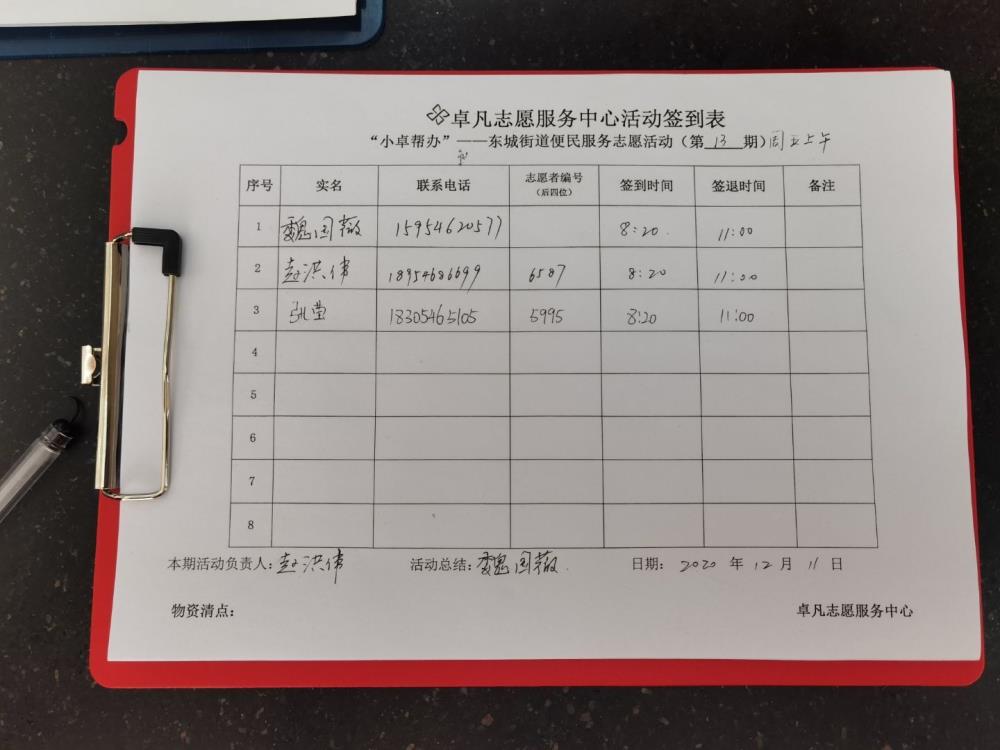 卓凡志愿服务中心活动签到表
“小卓帮办”——东城街道便民服务志愿活动（第 13 期）周五上午
序号 实名 联系电话 志愿者编号（后四位） 签到时间 签退时间 备注
1 魏国薇 15954620577 8:20. 11:00
2 赵洪伟 18954686699 6587 8:20 11:00
3 张莹 18305465105 5995 8:20 11:00
4
5
6
7
8
本期活动负责人：赵洪伟 活动总结：魏国薇. 日期： 2020 年 12 月 11 日
物资清点： 卓凡志愿服务中心